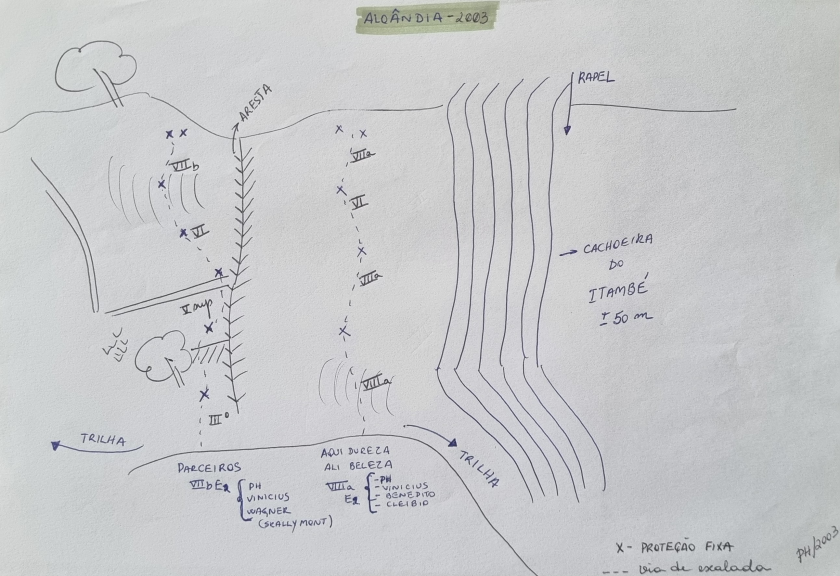 ALOÂNDIA - 2003
RAPEL
ARESTA
VIIb
VI
V sup
IIIº
VIIa
VI
VIIa
VIIIa
CACHOEIRA
DO
ITAMBÉ
± 50 m
TRILHA
TRILHA
PARCEIROS
VIIb E2
PH
VINICIUS
WAGNER
(SKALLYMONT)
AQUI DUREZA
ALI BELEZA
VIIIa
E2
- PH
- VINICIUS
- BENEDITO
- CLEIBIO
X - PROTEÇÃO FIXA
--- via de escalada
PH/2003